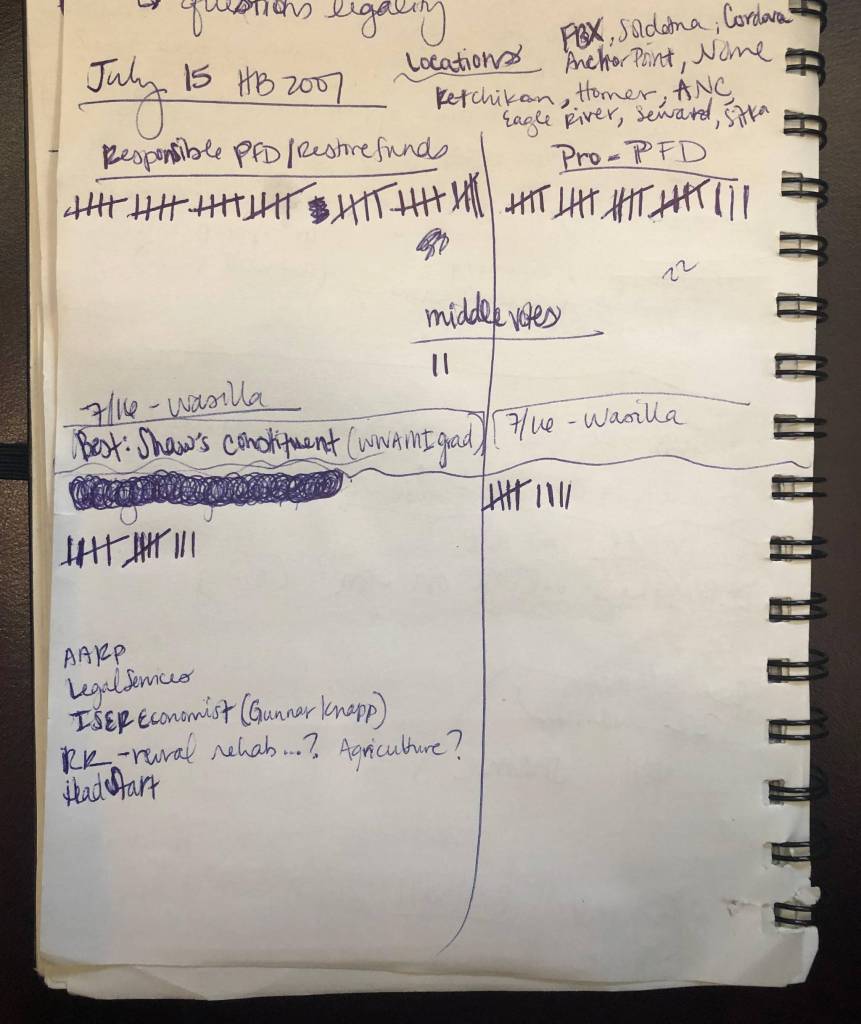 ↳ questions legality
July 15 HB 2001
Locations
FBX, Soldotna, Cordova
Anchor Point, Nome
Ketchikan, Homer, ANC,
Eagle River, Seward, Sitka
Responsible PFD/Restore funds
Pro-PFD
22
middle votes
||
7/16 - Wasilla
Best: Shaw's constituent (WWAMI grad)
7/16 - Wasilla
AARP
Legal Services
ISER Economist (Gunnar Knapp)
RR - rural rehab...? Agriculture?
Head Start